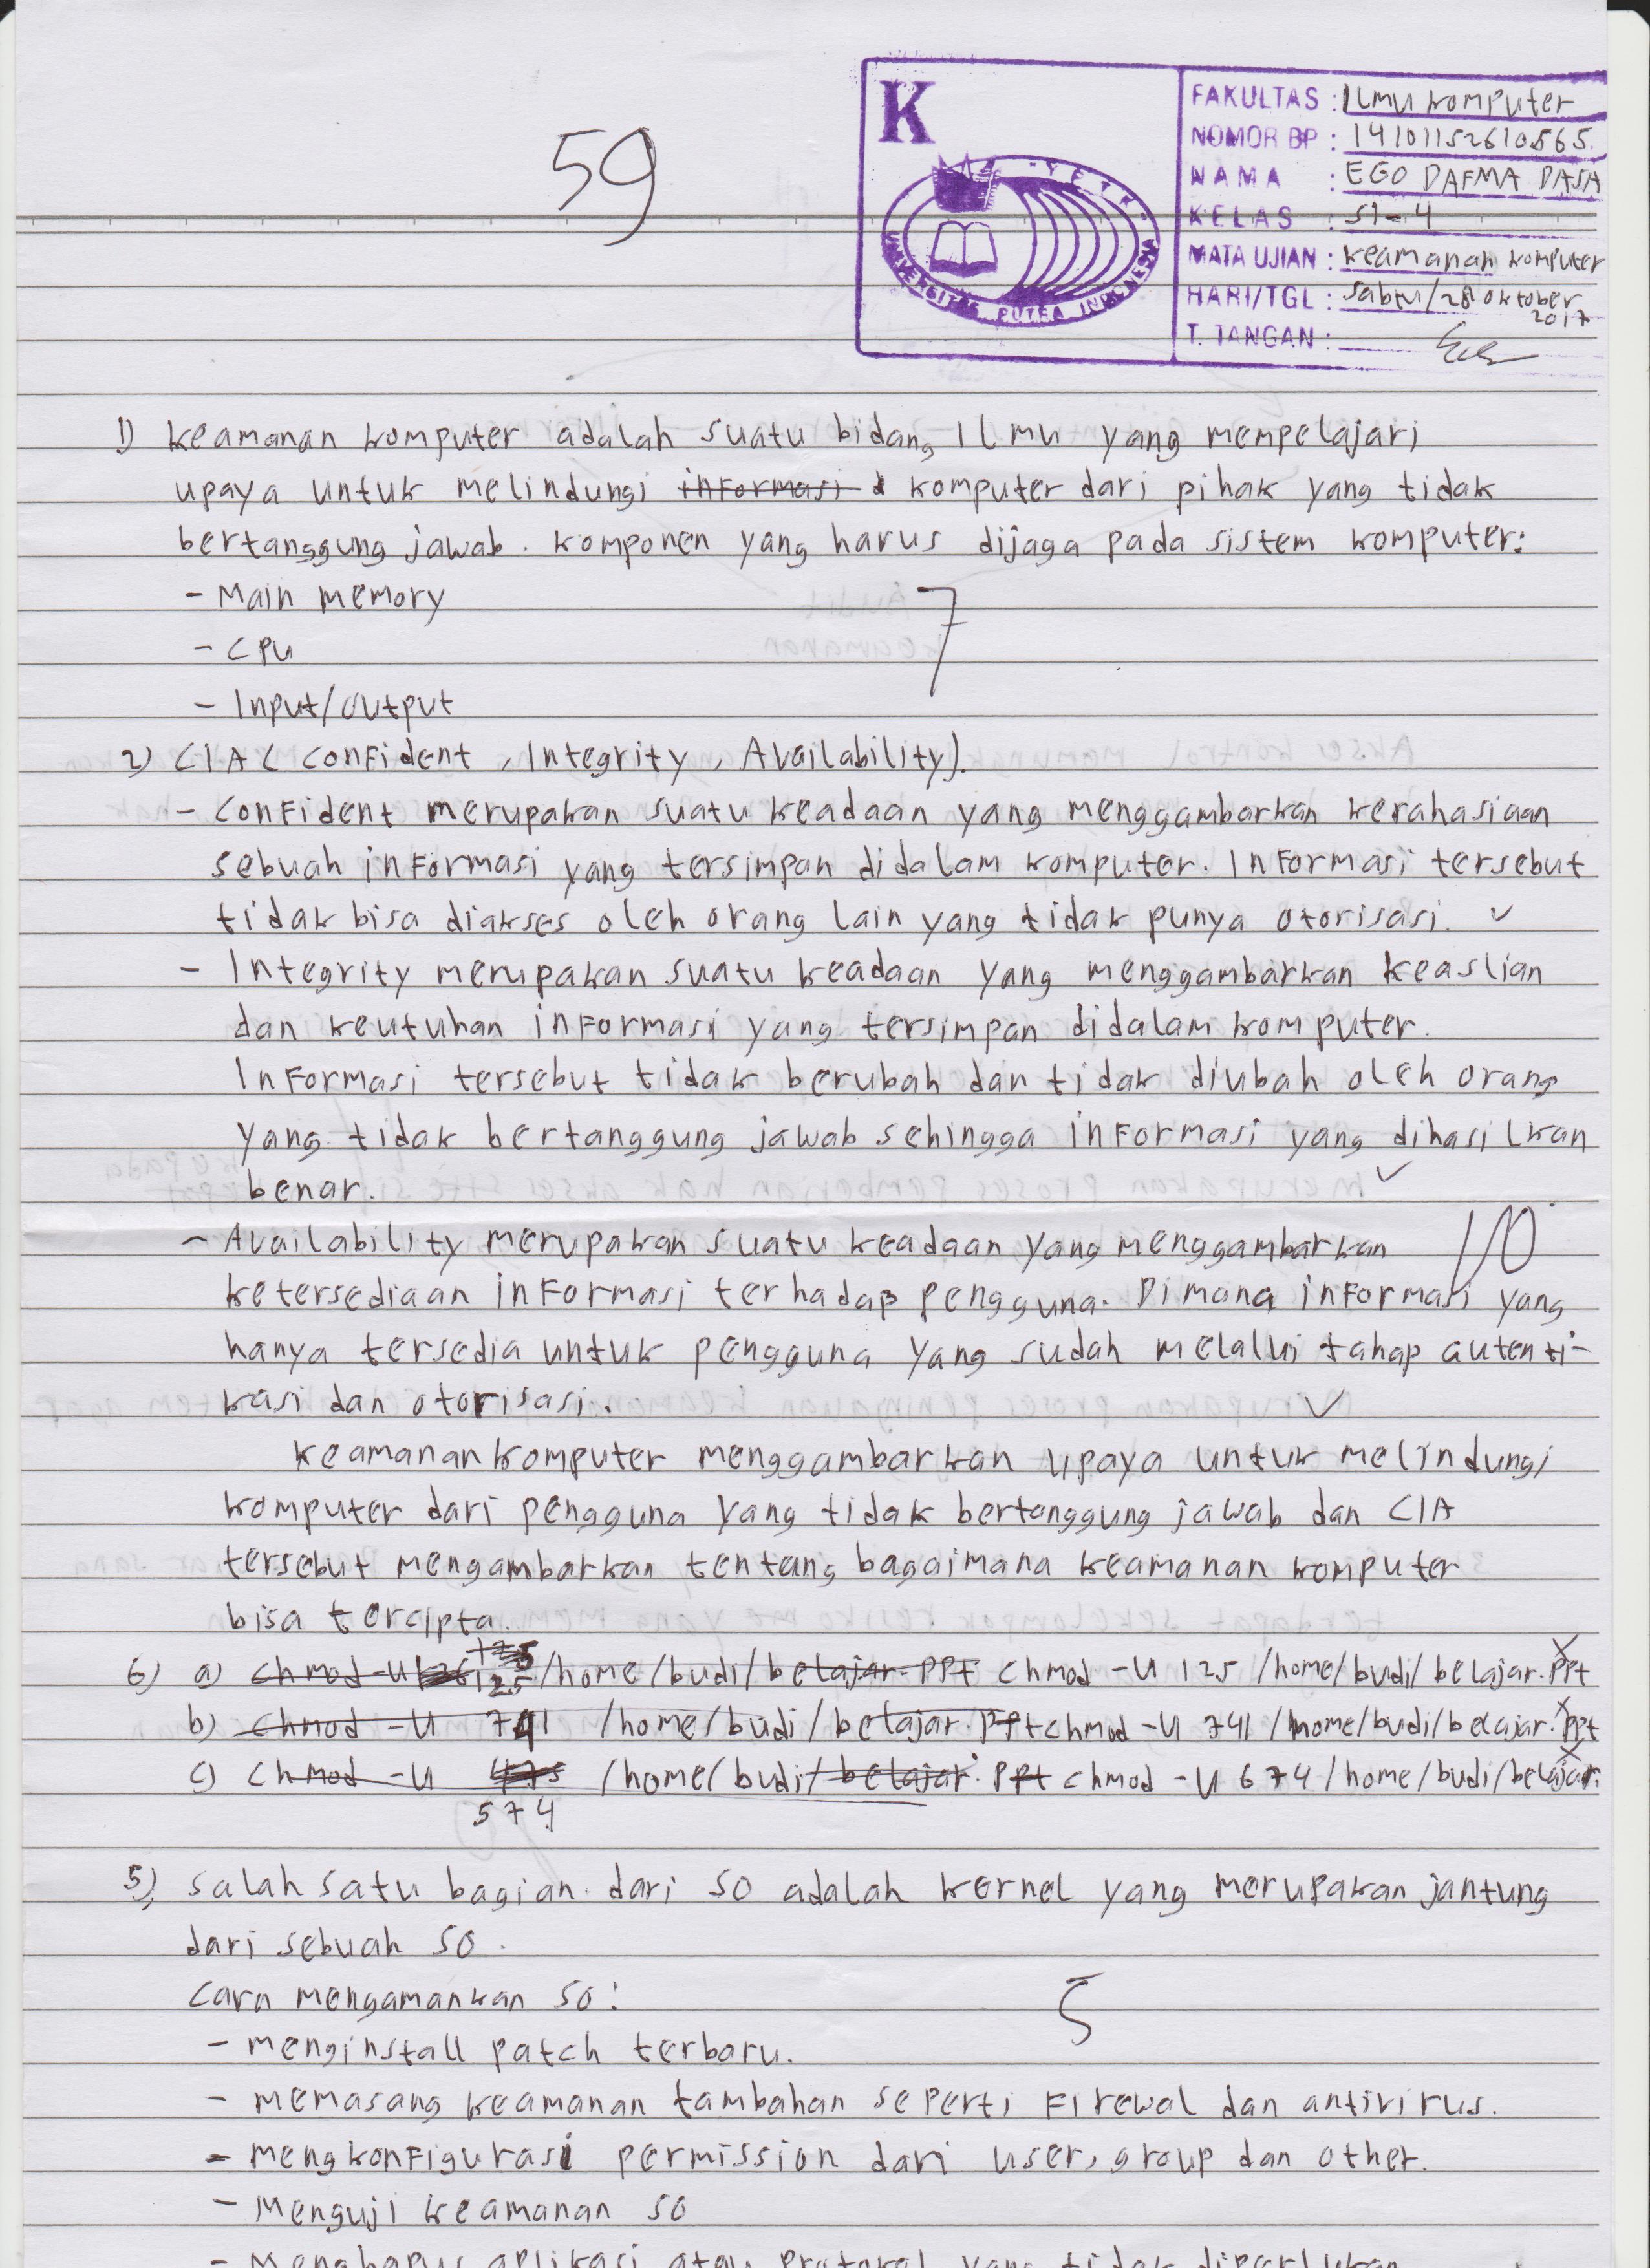 59
K
YPTK
UNIVERSITAS PUTRA INDONESIA
FAKULTAS : Ilmu komputer
NOMOR BP : 14101152610565
NAMA : EGO DAFMA DASA
KELAS : SI-4
MATA UJIAN : keamanan komputer
HARI/TGL : Sabtu/28 oktober 2017
T. TANGAN :
1) keamanan komputer adalah suatu bidang Ilmu yang mempelajari
upaya untuk melindungi informasi komputer dari pihak yang tidak
bertanggung jawab. komponen yang harus dijaga pada sistem komputer:
- Main memory
7
- CPU
- Input/output
2) CIA ( confident, Integrity, Availability).
- Confident merupakan suatu keadaan yang menggambarkan kerahasiaan
sebuah informasi yang tersimpan didalam komputer. Informasi tersebut
tidak bisa diakses oleh orang lain yang tidak punya otorisasi. ✓
- Integrity merupakan suatu keadaan yang menggambarkan keaslian
dan keutuhan informasi yang tersimpan didalam komputer.
Informasi tersebut tidak berubah dan tidak diubah oleh orang
yang tidak bertanggung jawab sehingga informasi yang dihasilkan
benar. ✓
- Availability merupakan suatu keadaan yang menggambarkan 10
ketersediaan informasi terhadap pengguna. Dimana informasi yang
hanya tersedia untuk pengguna yang sudah melalui tahap autenti-
kasi dan otorisasi. ✓
keamanan komputer menggambarkan upaya untuk melindungi
komputer dari pengguna yang tidak bertanggung jawab dan CIA
tersebut mengambarkan tentang bagaimana keamanan komputer
bisa tercipta.
6) a) chmod -u 125 /home/budi/belajar.ppt chmod -u 125 /home/budi/belajar.ppt
b) chmod -u 741 /home/budi/belajar.ppt chmod -u 741 /home/budi/belajar.ppt
c) chmod -u 475 /home/budi/belajar.ppt chmod -u 674 /home/budi/belajar.
574
5) salah satu bagian dari SO adalah kernel yang merupakan jantung
dari sebuah SO.
cara mengamankan SO:
5
- menginstall patch terbaru.
- memasang keamanan tambahan seperti Firewal dan antivirus.
- mengkonfigurasi permission dari user, group dan other.
- Menguji keamanan SO
- Menghapus aplikasi atau protokol yang tidak diperlukan